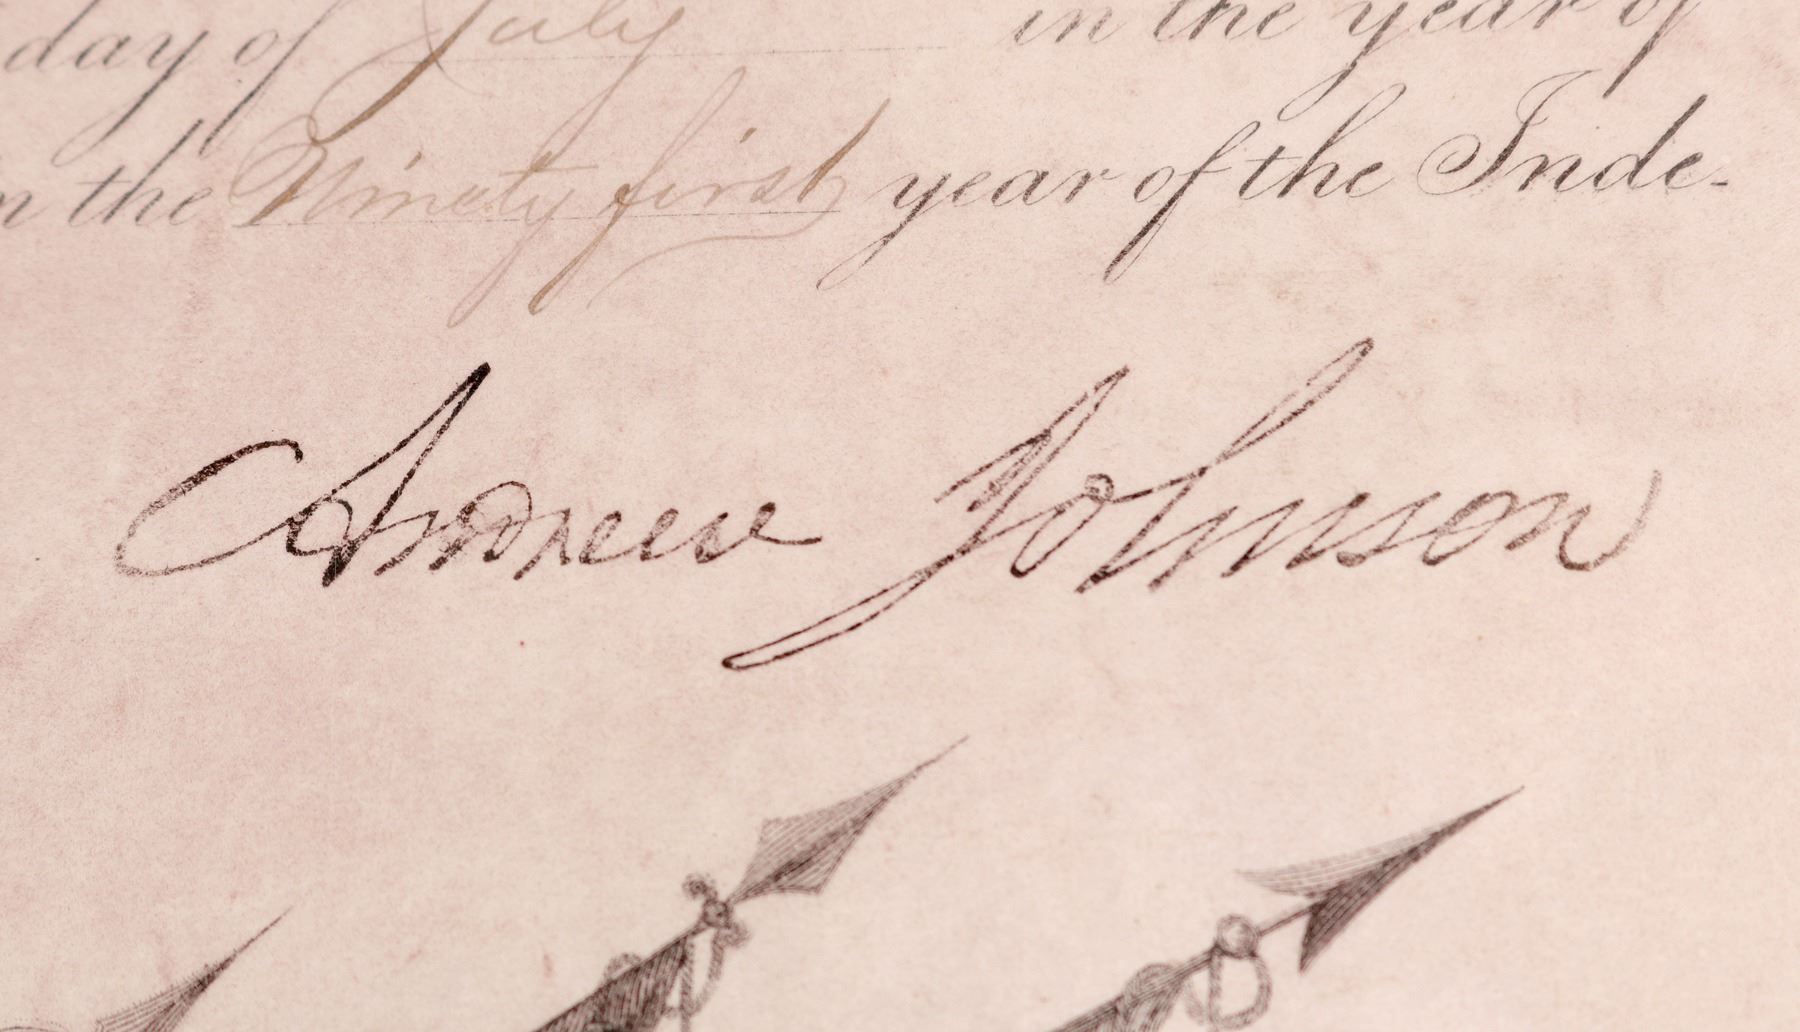 day of July in the year of
in the Ninety first year of the Inde-
Andrew Johnson